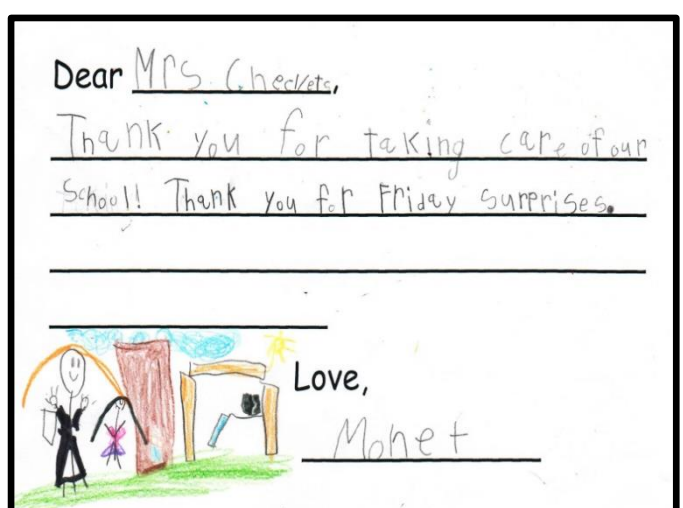 Dear Mrs. Checkets,
Thank you for taking care of our
School! Thank you for Friday surprises.
Love,
Monet